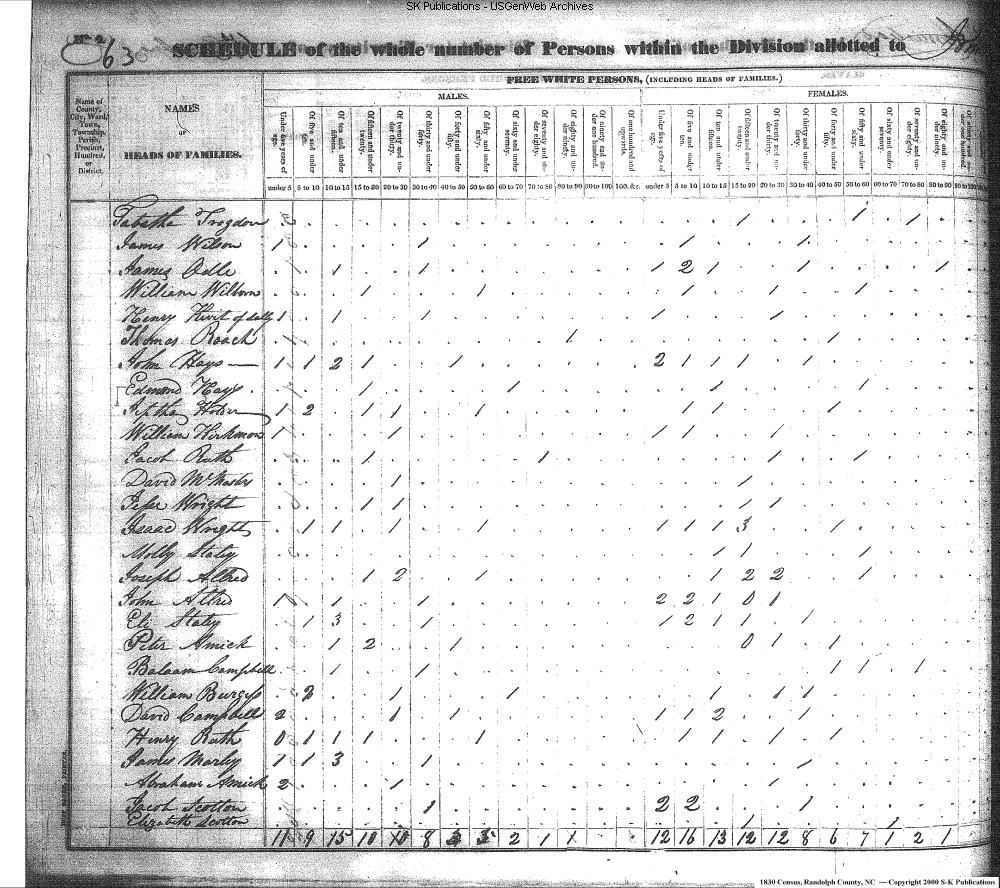 SK Publications - USGenWeb Archives
63
SCHEDULE of the whole number of Persons within the Division allotted to
FREE WHITE PERSONS, (INCLUDING HEADS OF FAMILIES.)
MALES.
FEMALES.
Name of County, City, Ward, Town, Township, Parish, Precinct, Hundred, or District.
NAMES
OF
HEADS OF FAMILIES.
Under five years of age.
Of five and under ten.
Of ten and under fifteen.
Of fifteen and under twenty.
Of twenty and under thirty.
Of thirty and under forty.
Of forty and under fifty.
Of fifty and under sixty.
Of sixty and under seventy.
Of seventy and under eighty.
Of eighty and under ninety.
Of ninety and under one hundred.
Of one hundred and upwards.
Under five years of age.
Of five and under ten.
Of ten and under fifteen.
Of fifteen and under twenty.
Of twenty and under thirty.
Of thirty and under forty.
Of forty and under fifty.
Of fifty and under sixty.
Of sixty and under seventy.
Of seventy and under eighty.
Of eighty and under ninety.
under 5 5 to 10 10 to 15 15 to 20 20 to 30 30 to 40 40 to 50 50 to 60 60 to 70 70 to 80 80 to 90 90 to 100 100, &c. under 5 5 to 10 10 to 15 15 to 20 20 to 30 30 to 40 40 to 50 50 to 60 60 to 70 70 to 80 80 to 90 90 to 100
Tabitha Trogdon 1 1 1
James Wilson 1 1 1 1
James Odle 1 1 1 2 1 1 1
William Wilborn 1 1 1 1 1
Henry of Sally 1 1 1 1 1
Thomas Roach 1 1
John Hays 1 1 2 1 1 2 1 1 1 1
Edmond Hays 1 1 1 1
Jeptha 1 2 1 1 1 1 1 1
William Hirkmon 1 1 1 1 1
Jacob Ruth 1 1 1 1
David McMasters 1 1
Jesse Wright 1 1 1 1
Isaac Wright 1 1 1 1 1 1 1 3 1
Molly Staley 1 1 1
Joseph Allred 1 2 1 1 2 2 1
John Allred 1 1 1 2 2 1 0 1
Eli Staley 1 3 1 1 2 1 1 1
Peter Amick 1 2 1 0 1 1
Balaam Campbell 1 1 1 1 1
William Burgess 2 1 1 1 1 1
David Campbell 2 1 1 1 1 2 1
Henry Ruth 0 1 1 1 1 1 1 1 1
James Marly 1 1 3 1 1
Abraham Amick 2 1 1
Jacob Scotton 1 2 2 1
Elizabeth Scotton 1 1
11 9 15 10 10 8 3 2 1 1 12 16 13 12 12 8 6 7 1 2 1
1830 Census, Randolph County, NC — Copyright 2000 S-K Publications